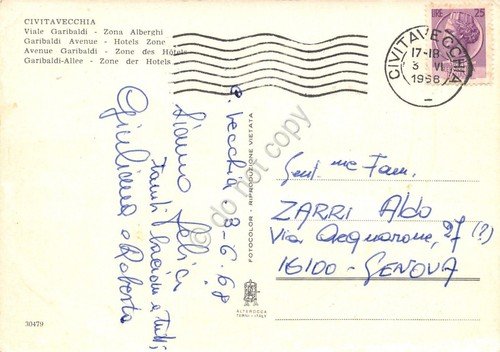 CIVITAVECCHIA
Viale Garibaldi - Zona Alberghi
Garibaldi Avenue - Hotels Zone
Avenue Garibaldi - Zone des Hôtels
Garibaldi-Allee - Zone der Hotels
LIRE 25
CIVITAVECCHIA
17-18
3 VI
1968
C. Vecchia 3-6-68
Siamo felici
Tanti bacioni a tutti
Giuliana e Roberto
do not copy
FOTOCOLOR - RIPRODUZIONE VIETATA
Gent.me Fam.
ZARRI Aldo
Via Acquarone, 27 (?)
16100 - GENOVA
ALTEROCCA
TERNI - ITALY
30479